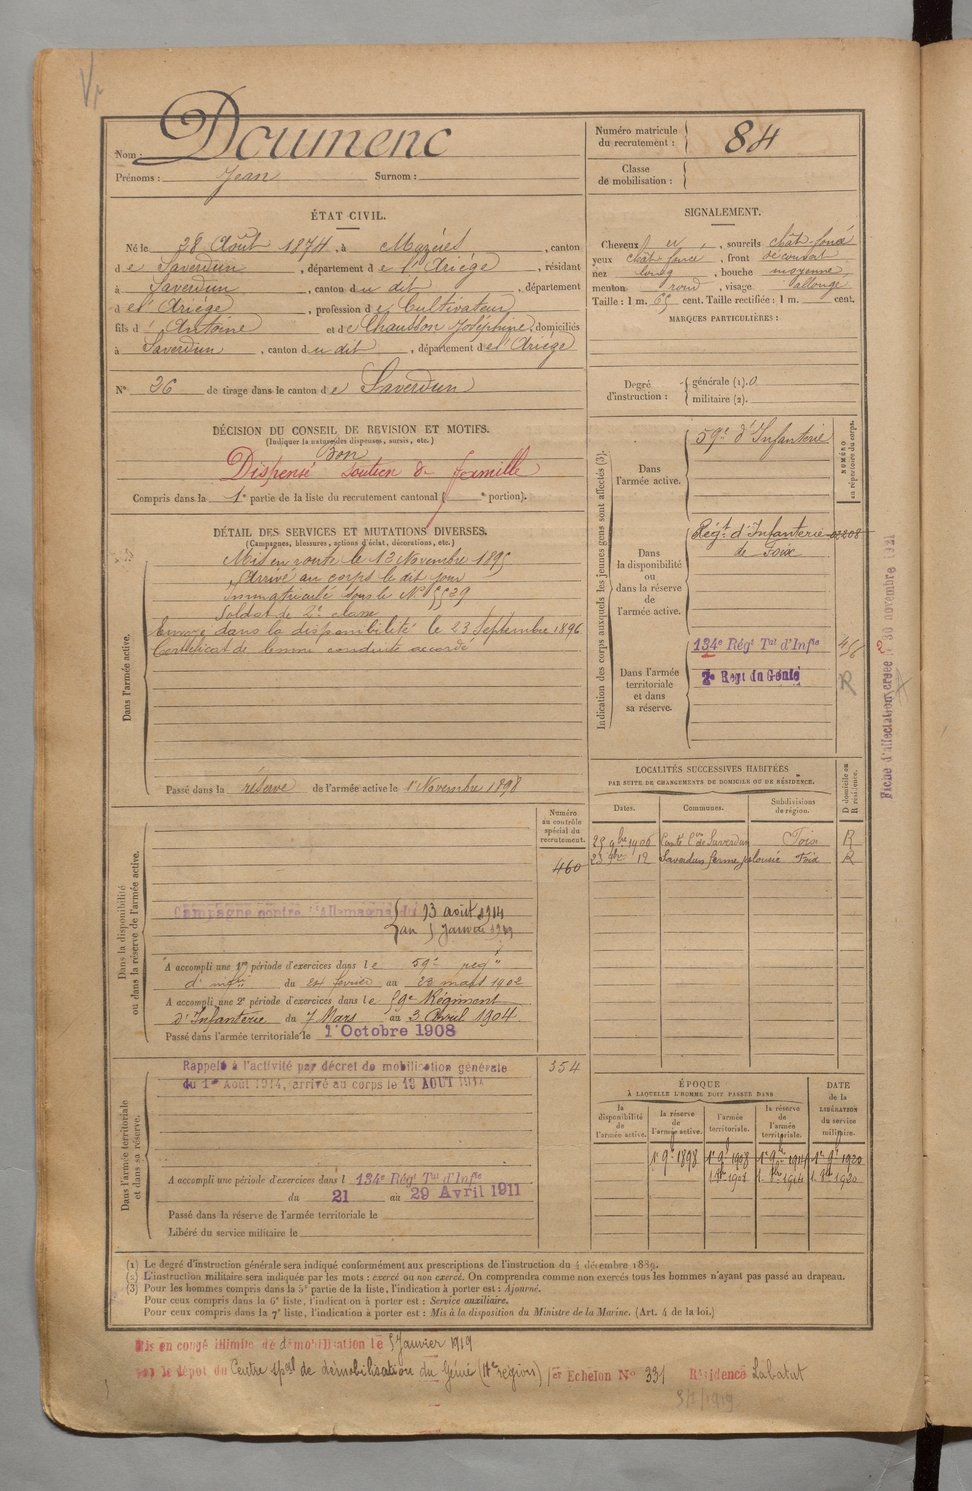 Nom : Doumenc
Prénoms : Jean Surnom :
Numéro matricule
du recrutement : 84
Classe
de mobilisation :
ÉTAT CIVIL.
Né le 28 Août 1874, à Mazères, canton
de Saverdun, département de l'Ariége, résidant
à Saverdun, canton du dit, département
de l'Ariége, profession de Cultivateur
fils d' Antoine et de Chausson Joséphine, domiciliés
à Saverdun, canton du dit, département de l'Ariége
N° 26 de tirage dans le canton de Saverdun
SIGNALEMENT.
Cheveux , sourcils chât foncé
yeux chât foncé, front découvert
nez long, bouche moyenne,
menton rond, visage allongé
Taille : 1 m. cent. Taille rectifiée : 1 m. cent.
MARQUES PARTICULIÈRES :
Degré
d'instruction :
générale (1). 0
militaire (2).
DÉCISION DU CONSEIL DE REVISION ET MOTIFS.
(Indiquer la nature des dispenses, sursis, etc.)
Bon
Dispensé soutien de famille
Compris dans la 1e partie de la liste du recrutement cantonal ( e portion).
DÉTAIL DES SERVICES ET MUTATIONS DIVERSES.
(Campagnes, blessures, actions d'éclat, décorations, etc.)
Dans l'armée active.
Mis en route le 13 Novembre 1895
Arrivé au corps le dit jour
Immatriculé sous le N° 5539
Soldat de 2e classe
Envoyé dans la disponibilité le 23 Septembre 1896
Certificat de bonne conduite accordé
Passé dans la réserve de l'armée active le 1 Novembre 1898
Indication des corps auxquels les jeunes gens sont affectés (3).
NUMÉRO
au répertoire du corps.
Dans
l'armée active.
59e d'Infanterie
Dans
la disponibilité
ou
dans la réserve
de
l'armée active.
Régt d'Infanterie
de Foix
Dans l'armée
territoriale
et dans
sa réserve.
134e Régt Tal d'Infie
2e Regt du Génie
R
Fiche d'affectation créée le 30 novembre 1921
LOCALITÉS SUCCESSIVES HABITÉES
PAR SUITE DE CHANGEMENTS DE DOMICILE OU DE RÉSIDENCE.
Dates.
Communes.
Subdivisions
de région.
D domicile ou
R résidence.
25 9bre 1906 Saverdun Foix R
Saverdun ferme jalousie Foix R
Dans la disponibilité
ou dans la réserve de l'armée active.
Numéro
au contrôle
spécial du
recrutement.
460
Campagne contre l'Allemagne du 13 août 1914
au 5 Janvier 1919
A accompli une 1re période d'exercices dans le 59e regt
d' infie du 24 fevrier au 23 mars 1902
A accompli une 2e période d'exercices dans le 59e Régiment
d'Infanterie du 7 Mars au 3 Avril 1904.
Passé dans l'armée territoriale le 1 Octobre 1908
Dans l'armée territoriale
et dans sa réserve.
Rappelé à l'activité par décret de mobilisation générale
du 1er Août 1914, arrivé au corps le 13 AOUT 1914
354
A accompli une période d'exercices dans l 134e Régt Tal d'Infie
du 21 au 29 Avril 1911
Passé dans la réserve de l'armée territoriale le
Libéré du service militaire le
ÉPOQUE
À LAQUELLE L'HOMME DOIT PASSER DANS
la
disponibilité
de
l'armée active.
la réserve
de
l'armée active.
l'armée
territoriale.
la réserve
de
l'armée
territoriale.
DATE
de la
LIBÉRATION
du service
militaire.
1er 9bre 1898 1er 9bre 1908 1er 9bre 1914 1er 9bre 1920
(1) Le degré d'instruction générale sera indiqué conformément aux prescriptions de l'instruction du 4 décembre 1889.
(2) L'instruction militaire sera indiquée par les mots : exercé ou non exercé. On comprendra comme non exercés tous les hommes n'ayant pas passé au drapeau.
(3) Pour les hommes compris dans la 5e partie de la liste, l'indication à porter est : Ajourné.
Pour ceux compris dans la 6e liste, l'indication à porter est : Service auxiliaire.
Pour ceux compris dans la 7e liste, l'indication à porter est : Mis à la disposition du Ministre de la Marine. (Art. 4 de la loi.)
Mis en congé illimité de démobilisation le 5 Janvier 1919
par le dépôt du Centre spal de démobilisation du Génie (17e région) 1er Echelon N° 331 Résidence Labatut